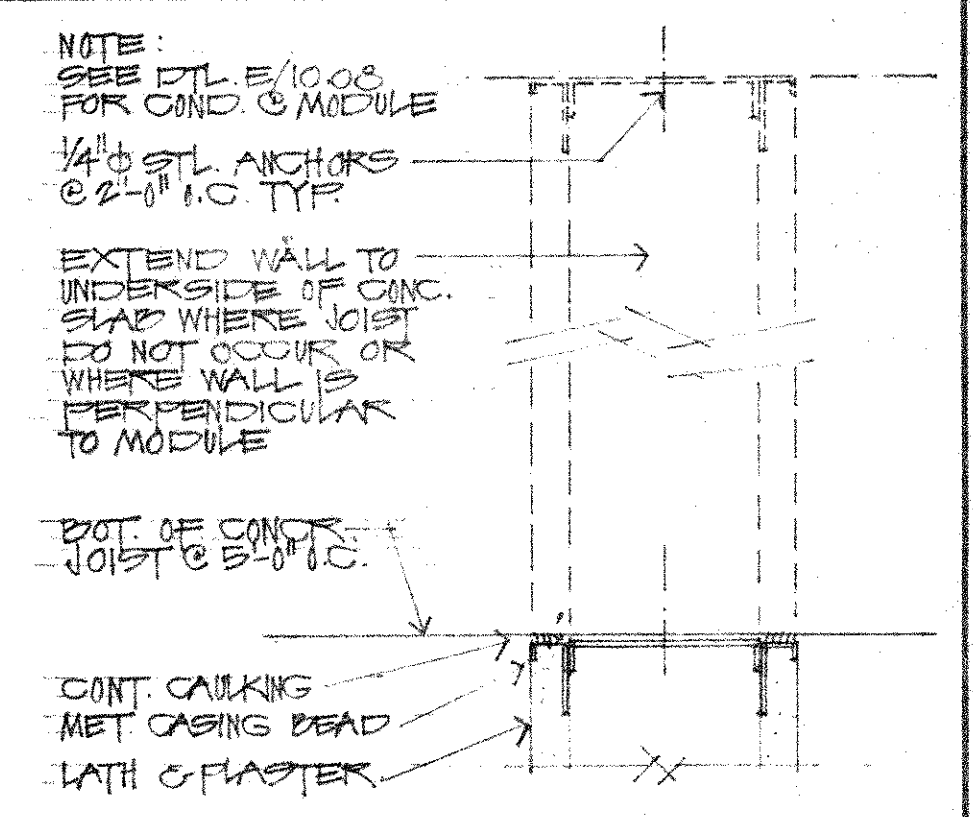 NOTE:
SEE DTL. E/10.08
FOR COND. @ MODULE
1/4"ϕ STL. ANCHORS
@ 2'-0" O.C. TYP.
EXTEND WALL TO
UNDERSIDE OF CONC.
SLAB WHERE JOIST
DO NOT OCCUR OR
WHERE WALL IS
PERPENDICULAR
TO MODULE
BOT. OF CONCR.
JOIST @ 5'-0" O.C.
CONT. CAULKING
MET. CASING BEAD
LATH & PLASTER